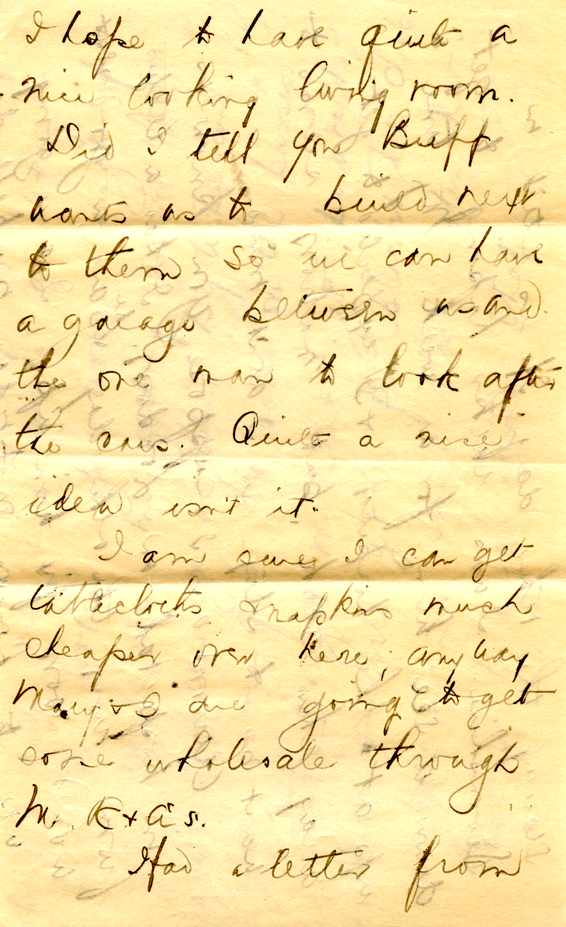 I hope to have quite a
nice looking living room.
Did I tell you Buff
wants us to build next
to them so we can have
a garage between us and
the one man to look after
the cars. Quite a nice
idea isn't it.
I am sure I can get
tablecloths & napkins much
cheaper over here, anyway
Mary & I are going to get
some wholesale through
M. R & A's.
Had a letter from